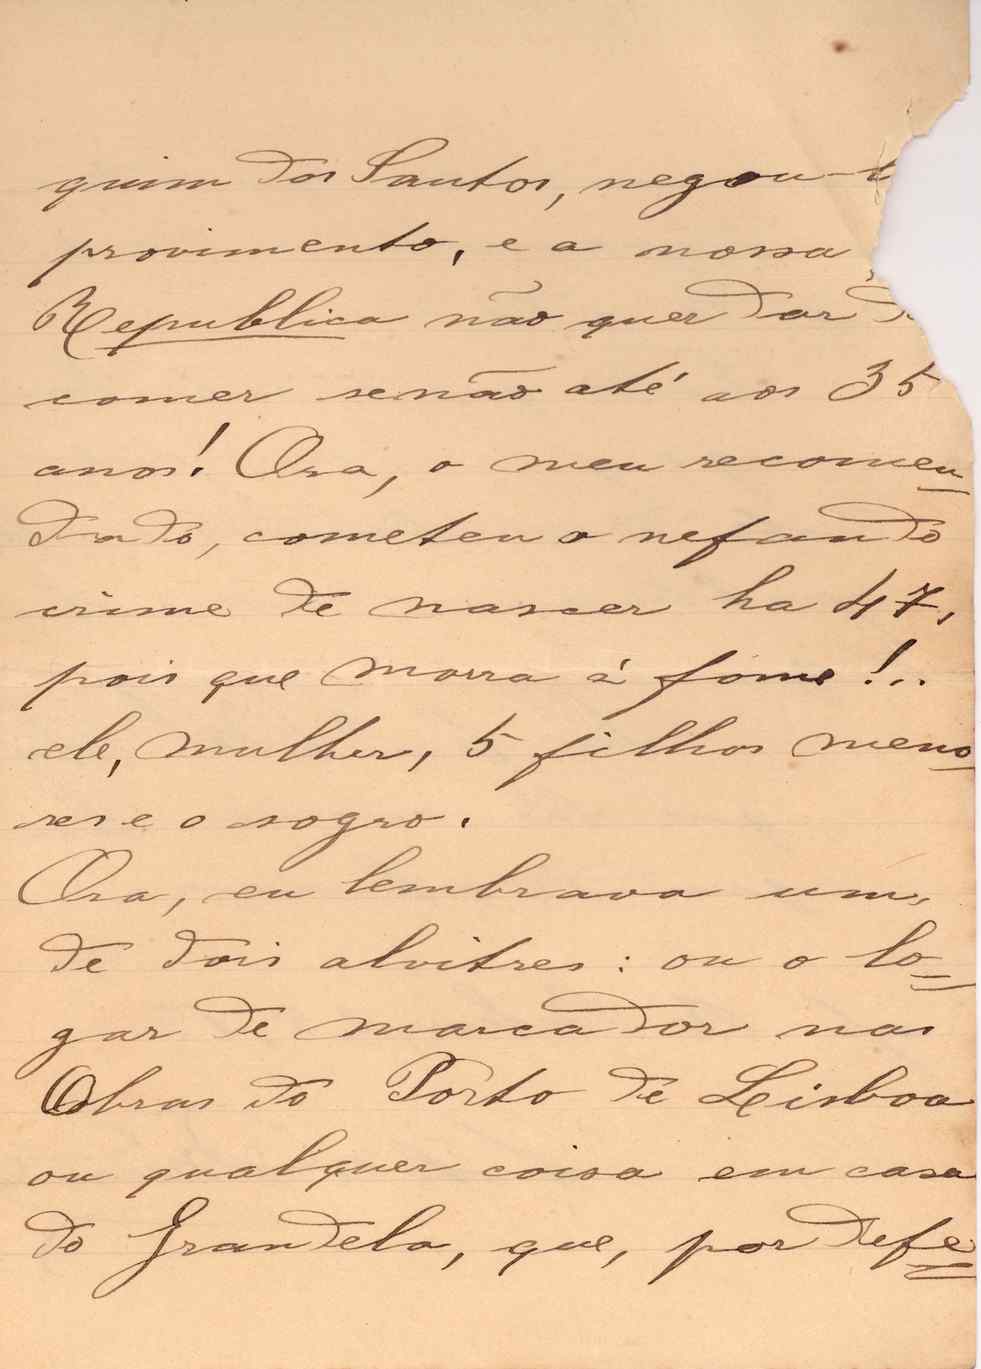 quim dos Santos, negou-l
provimento, e a nossa
Republica não quer dar d
comer senão até aos 35
anos! Ora, o meu recomen-
dado, cometeu o nefando
crime de nascer ha 47,
pois que morra á fome!..
ele, mulher, 5 filhos meno-
res e o sogro.
Ora, eu lembrava um,
de dois alvitres: ou o lo=
gar de marcador nas
Obras do Porto de Lisboa
ou qualquer coisa em casa
do Grandela, que, por defe=